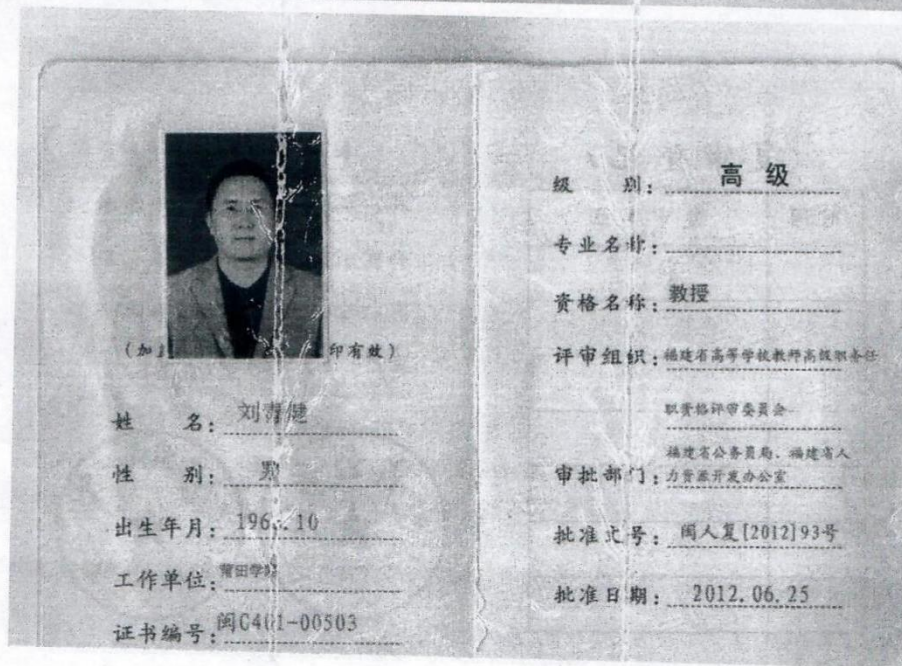 (加 印有效)
姓 名：刘 健
性 别：男
出生年月：196 .10
工作单位：莆田学院
证书编号：闽C401-00503
级 别：高 级
专业名称：
资格名称：教授
评审组织：福建省高等学校教师高级职务任
职资格评审委员会
审批部门：福建省公务员局、福建省人
力资源开发办公室
批准文号：闽人复[2012]93号
批准日期：2012.06.25